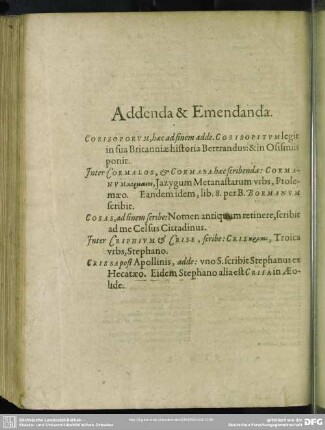 Addenda & Emendanda.
CORISOPORVM, hæc ad finem adde. CORISOPITVM legit
in sua Britanniæ historia Bertrandus: & in Osismiis
ponit.
Inter CORMALOS, & CORMASA hæc scribenda: CORMA-
NVM, Jazygum Metanastarum vrbs, Ptole-
mæo. Eandem idem, lib. 8. per B. BORMANVM
scribit.
COSAS, ad finem scribe: Nomen antiquum retinere, scribit
ad me Celsus Cittadinus.
Inter CRIPHIVM & CRISE, scribe: CRIS, Troica
vrbs, Stephano.
CRISSA post Apollinis, adde: vno S. scribit Stephanus ex
Hecatæo. Eidem Stephano alia est CRISA in Æo-
lide.
DFG